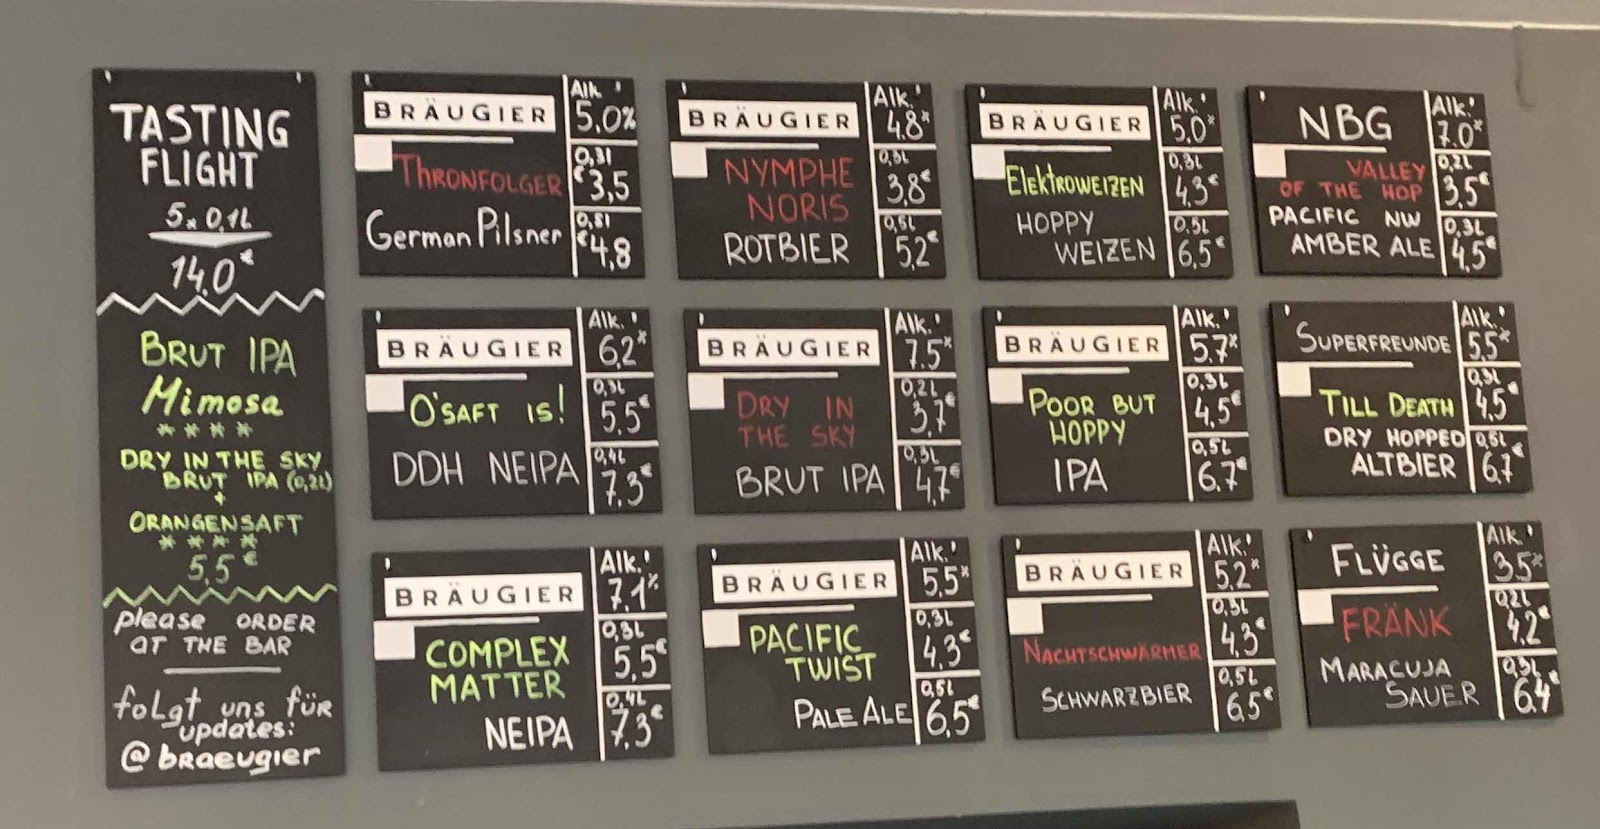 TASTING
FLIGHT
5x 0,1L
14,0€
BRUT IPA
Mimosa
****
DRY IN THE SKY
BRUT IPA (0,2L)
+
ORANGENSAFT
****
5,5€
please ORDER
AT THE BAR
folgt uns für
updates:
@braeugier
BRÄUGIER
Alk.
5,0%
THRONFOLGER
0,3l
€3,5
German Pilsner
0,5l
€4,8
BRÄUGIER
Alk.
4,8%
NYMPHE
NORIS
0,3L
3,8€
ROTBIER
0,5L
5,2€
BRÄUGIER
Alk.
5,0%
ELEKTROWEIZEN
0,3L
4,3€
HOPPY
WEIZEN
0,5L
6,5€
NBG
Alk.
7,0%
VALLEY
OF THE HOP
0,2L
3,5€
PACIFIC NW
AMBER ALE
0,3L
4,5€
BRÄUGIER
Alk.
6,2%
O'SAFT IS!
0,3L
5,5€
DDH NEIPA
0,4L
7,3€
BRÄUGIER
Alk.
7,5%
DRY IN
THE SKY
0,2L
3,7€
BRUT IPA
0,3L
4,7€
BRÄUGIER
Alk.
5,7%
POOR BUT
HOPPY
0,3L
4,5€
IPA
0,5L
6,7€
SUPERFREUNDE
Alk.
5,5%
TILL DEATH
0,3L
4,5€
DRY HOPPED
ALTBIER
0,5L
6,7€
BRÄUGIER
Alk.
7,1%
COMPLEX
MATTER
0,3L
5,5€
NEIPA
0,4L
7,3€
BRÄUGIER
Alk.
5,5%
PACIFIC
TWIST
0,3L
4,3€
PALE ALE
0,5L
6,5€
BRÄUGIER
Alk.
5,2%
NACHTSCHWÄRMER
0,3L
4,3€
SCHWARZBIER
0,5L
6,5€
FLÜGGE
Alk.
3,5%
FRÄNK
0,2L
4,2€
MARACUJA
SAUER
0,3L
6,4€